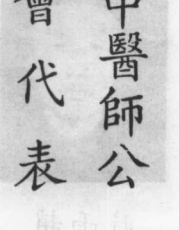 中醫師公
會代表